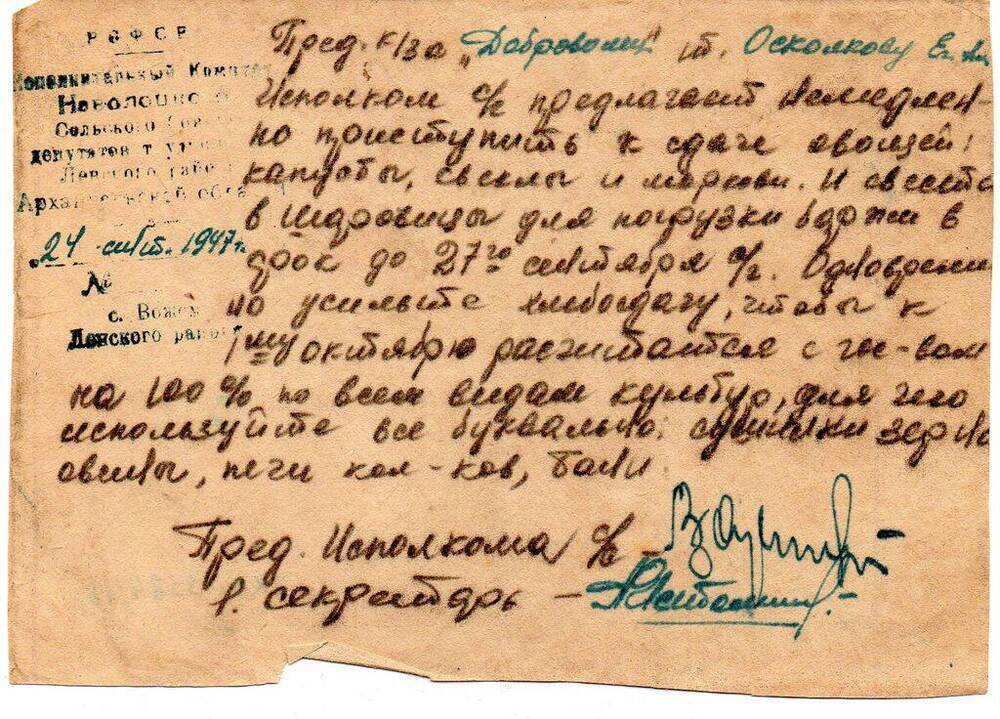 РСФСР
Исполнительный Комитет
Наволоцко
Сельского Сов
депутатов т
Ленского рай
Архангельской обла
"24 сент. 1947 г.
№
с. Вожем
Ленского рай
Пред. к/за "Доброволец" т. Осколкову Ег. Ан
Исполком с/с предлагает немедлен-
но приступить к сдаче овощей:
капусты, свеклы и моркови. И свести
в Шдровицы для погрузки баржи в
срок до 27го сентября с/г. Одновремен
но усильте хлебосдачу, чтобы к
1му октябрю расчитаться с гос-вом
на 100 % по всем видам культур, для чего
используйте все буквально: сушилки зерно
овины, печи кол-ков, бани.
Пред. Исполкома с/с -
Р. секретарь -